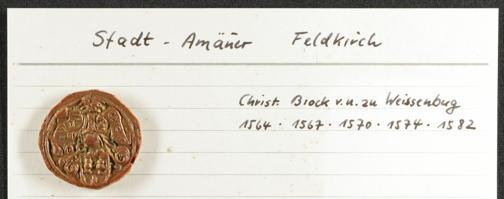 Stadt - Amäner Feldkirch
Christ. Brock v. u. zu Weissenburg
1564 · 1567 · 1570 · 1574 · 1582